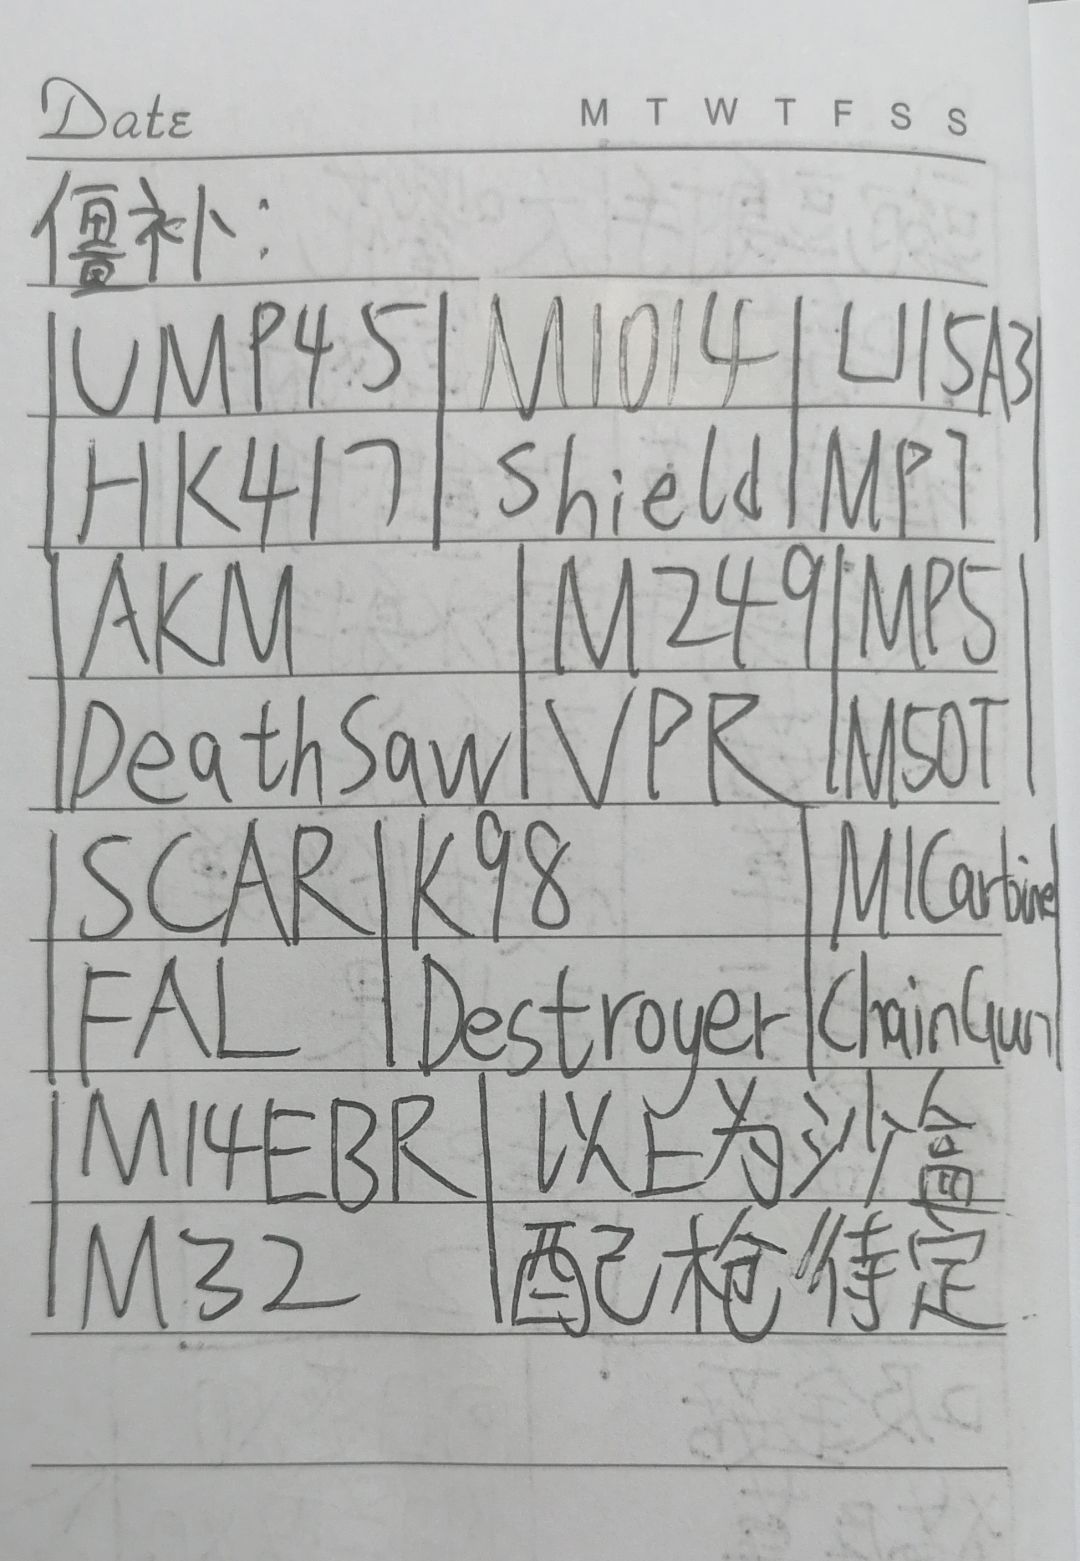 Date M T W T F S S
僵补:
UMP45 M1014 U15A3
HK417 Shield MP7
AKM M249 MP5
DeathSaw VPR M50T
SCAR K98 M1Carbine
FAL Destroyer ChainGun
M14EBR 以上为沙盒
M32 配枪//待定